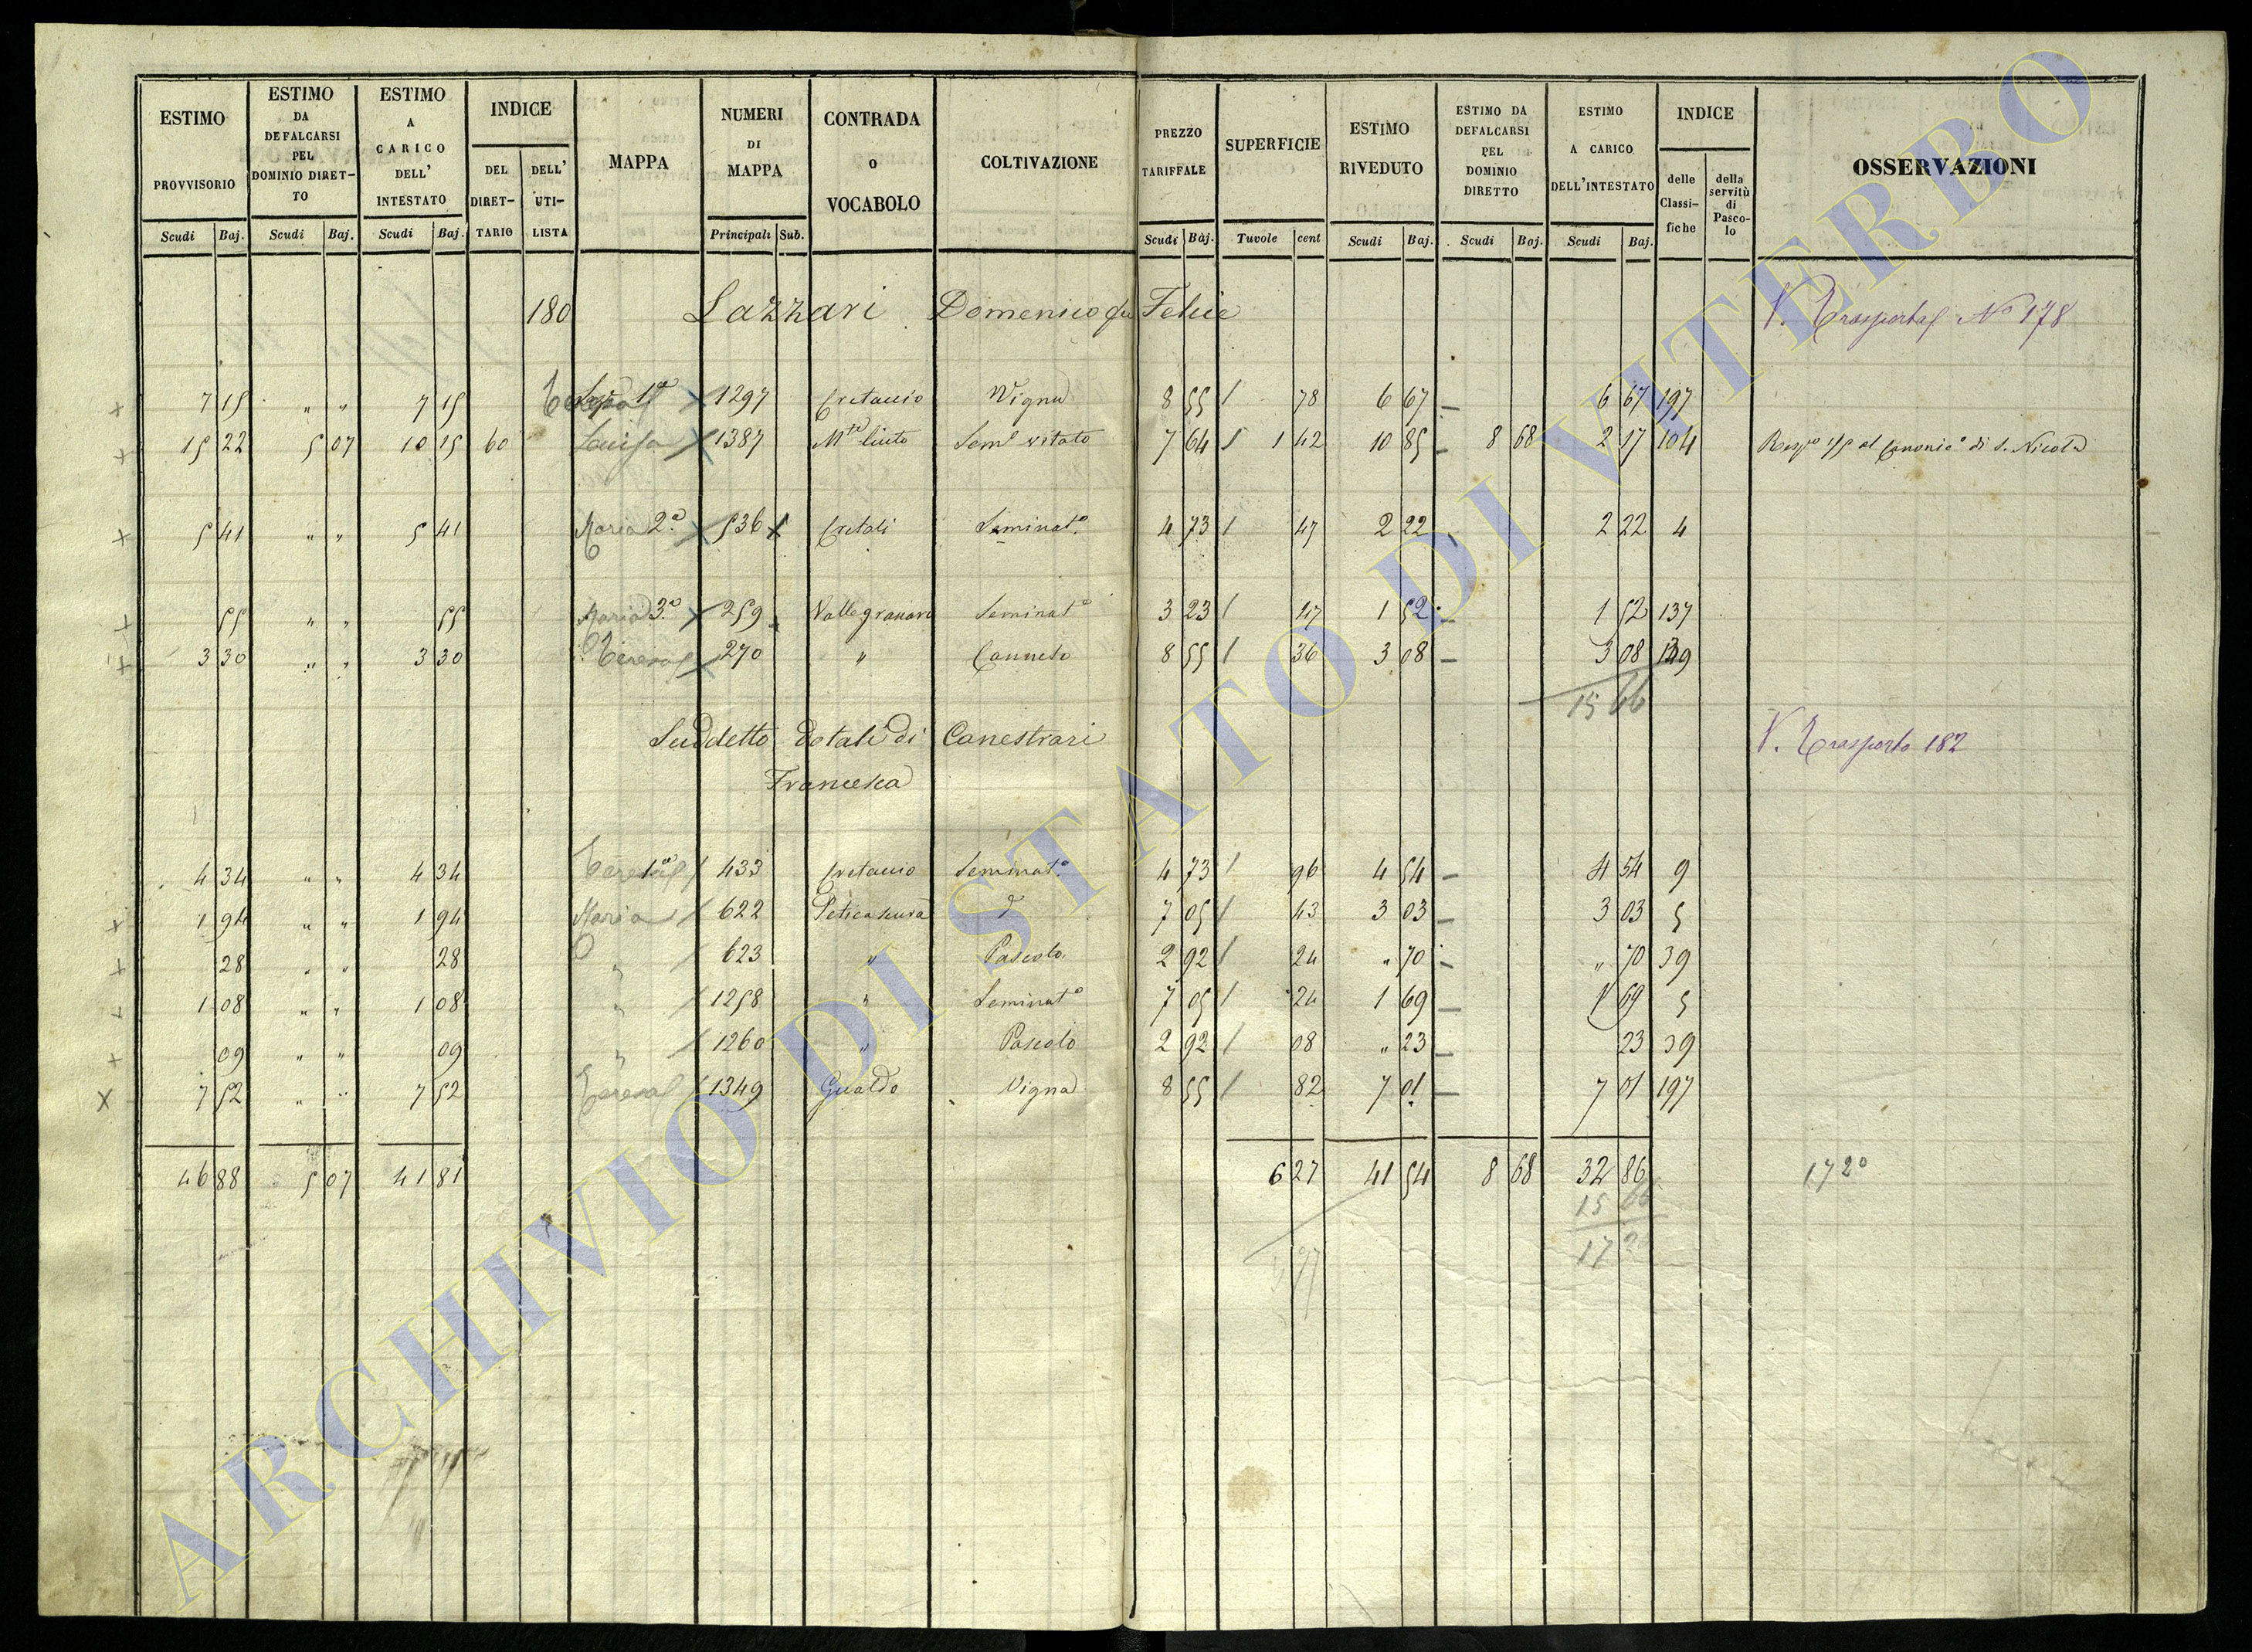 ESTIMO PROVVISORIO
ESTIMO DA DEFALCARSI PEL DOMINIO DIRET-TO
ESTIMO A CARICO DELL' INTESTATO
INDICE
DEL DIRET-TARIO
DELL' UTI-LISTA
MAPPA
NUMERI DI MAPPA
CONTRADA o VOCABOLO
COLTIVAZIONE
PREZZO TARIFFALE
SUPERFICIE
ESTIMO RIVEDUTO
ESTIMO DA DEFALCARSI PEL DOMINIO DIRETTO
ESTIMO A CARICO DELL'INTESTATO
INDICE
delle Classi-fiche
della servitù di Pasco-lo
OSSERVAZIONI
Scudi Baj. Scudi Baj. Scudi Baj. Principali Sub. Scudi Baj. Tavole cent Scudi Baj. Scudi Baj. Scudi Baj.
180 Lazzari Domenico qu Felice V. Trasporto N° 178
7 15 " " 7 15 1ª 1297 Cretaccio Vigna 8 55 78 6 67 6 67 197
15 22 5 07 10 15 60 Luisa 1387 Mte liuto Semo vitato 7 64 1 42 10 85 8 68 2 17 104 1/5 al Canonico di S. Nicola
5 41 " " 5 41 Maria 2ª 536 Cretali Seminato 4 73 47 2 22 2 22 4
55 " " 55 Maria 3ª 259 Valle granara Seminato 3 23 47 1 52 1 52 137
3 30 " " 3 30 Teresa 270 " Canneto 8 55 36 3 08 3 08
15 66
Suddetto dotali di Canestrari V. Trasporto 182
Francesca
4 34 " " 4 34 Teresa 1ª 433 Cretaccio Seminato 4 73 96 4 54 4 54 9
1 94 " " 1 94 Maria 622 Peticascura d 7 05 43 3 03 3 03 5
28 " " 28 " 623 " Pascolo 2 92 24 " 70 " 70 39
1 08 " " 1 08 " 1258 " Seminato 7 05 24 1 69 1 69 5
09 " " 09 " 1260 " Pascolo 2 92 08 " 23 23 39
7 52 " " 7 52 Teresa 1349 Gualdo Vigna 8 55 82 7 01 7 01 197
46 88 5 07 41 81 6 27 41 54 8 68 32 86 17 20
15 66
17 20
ARCHIVIO DI STATO DI VITERBO